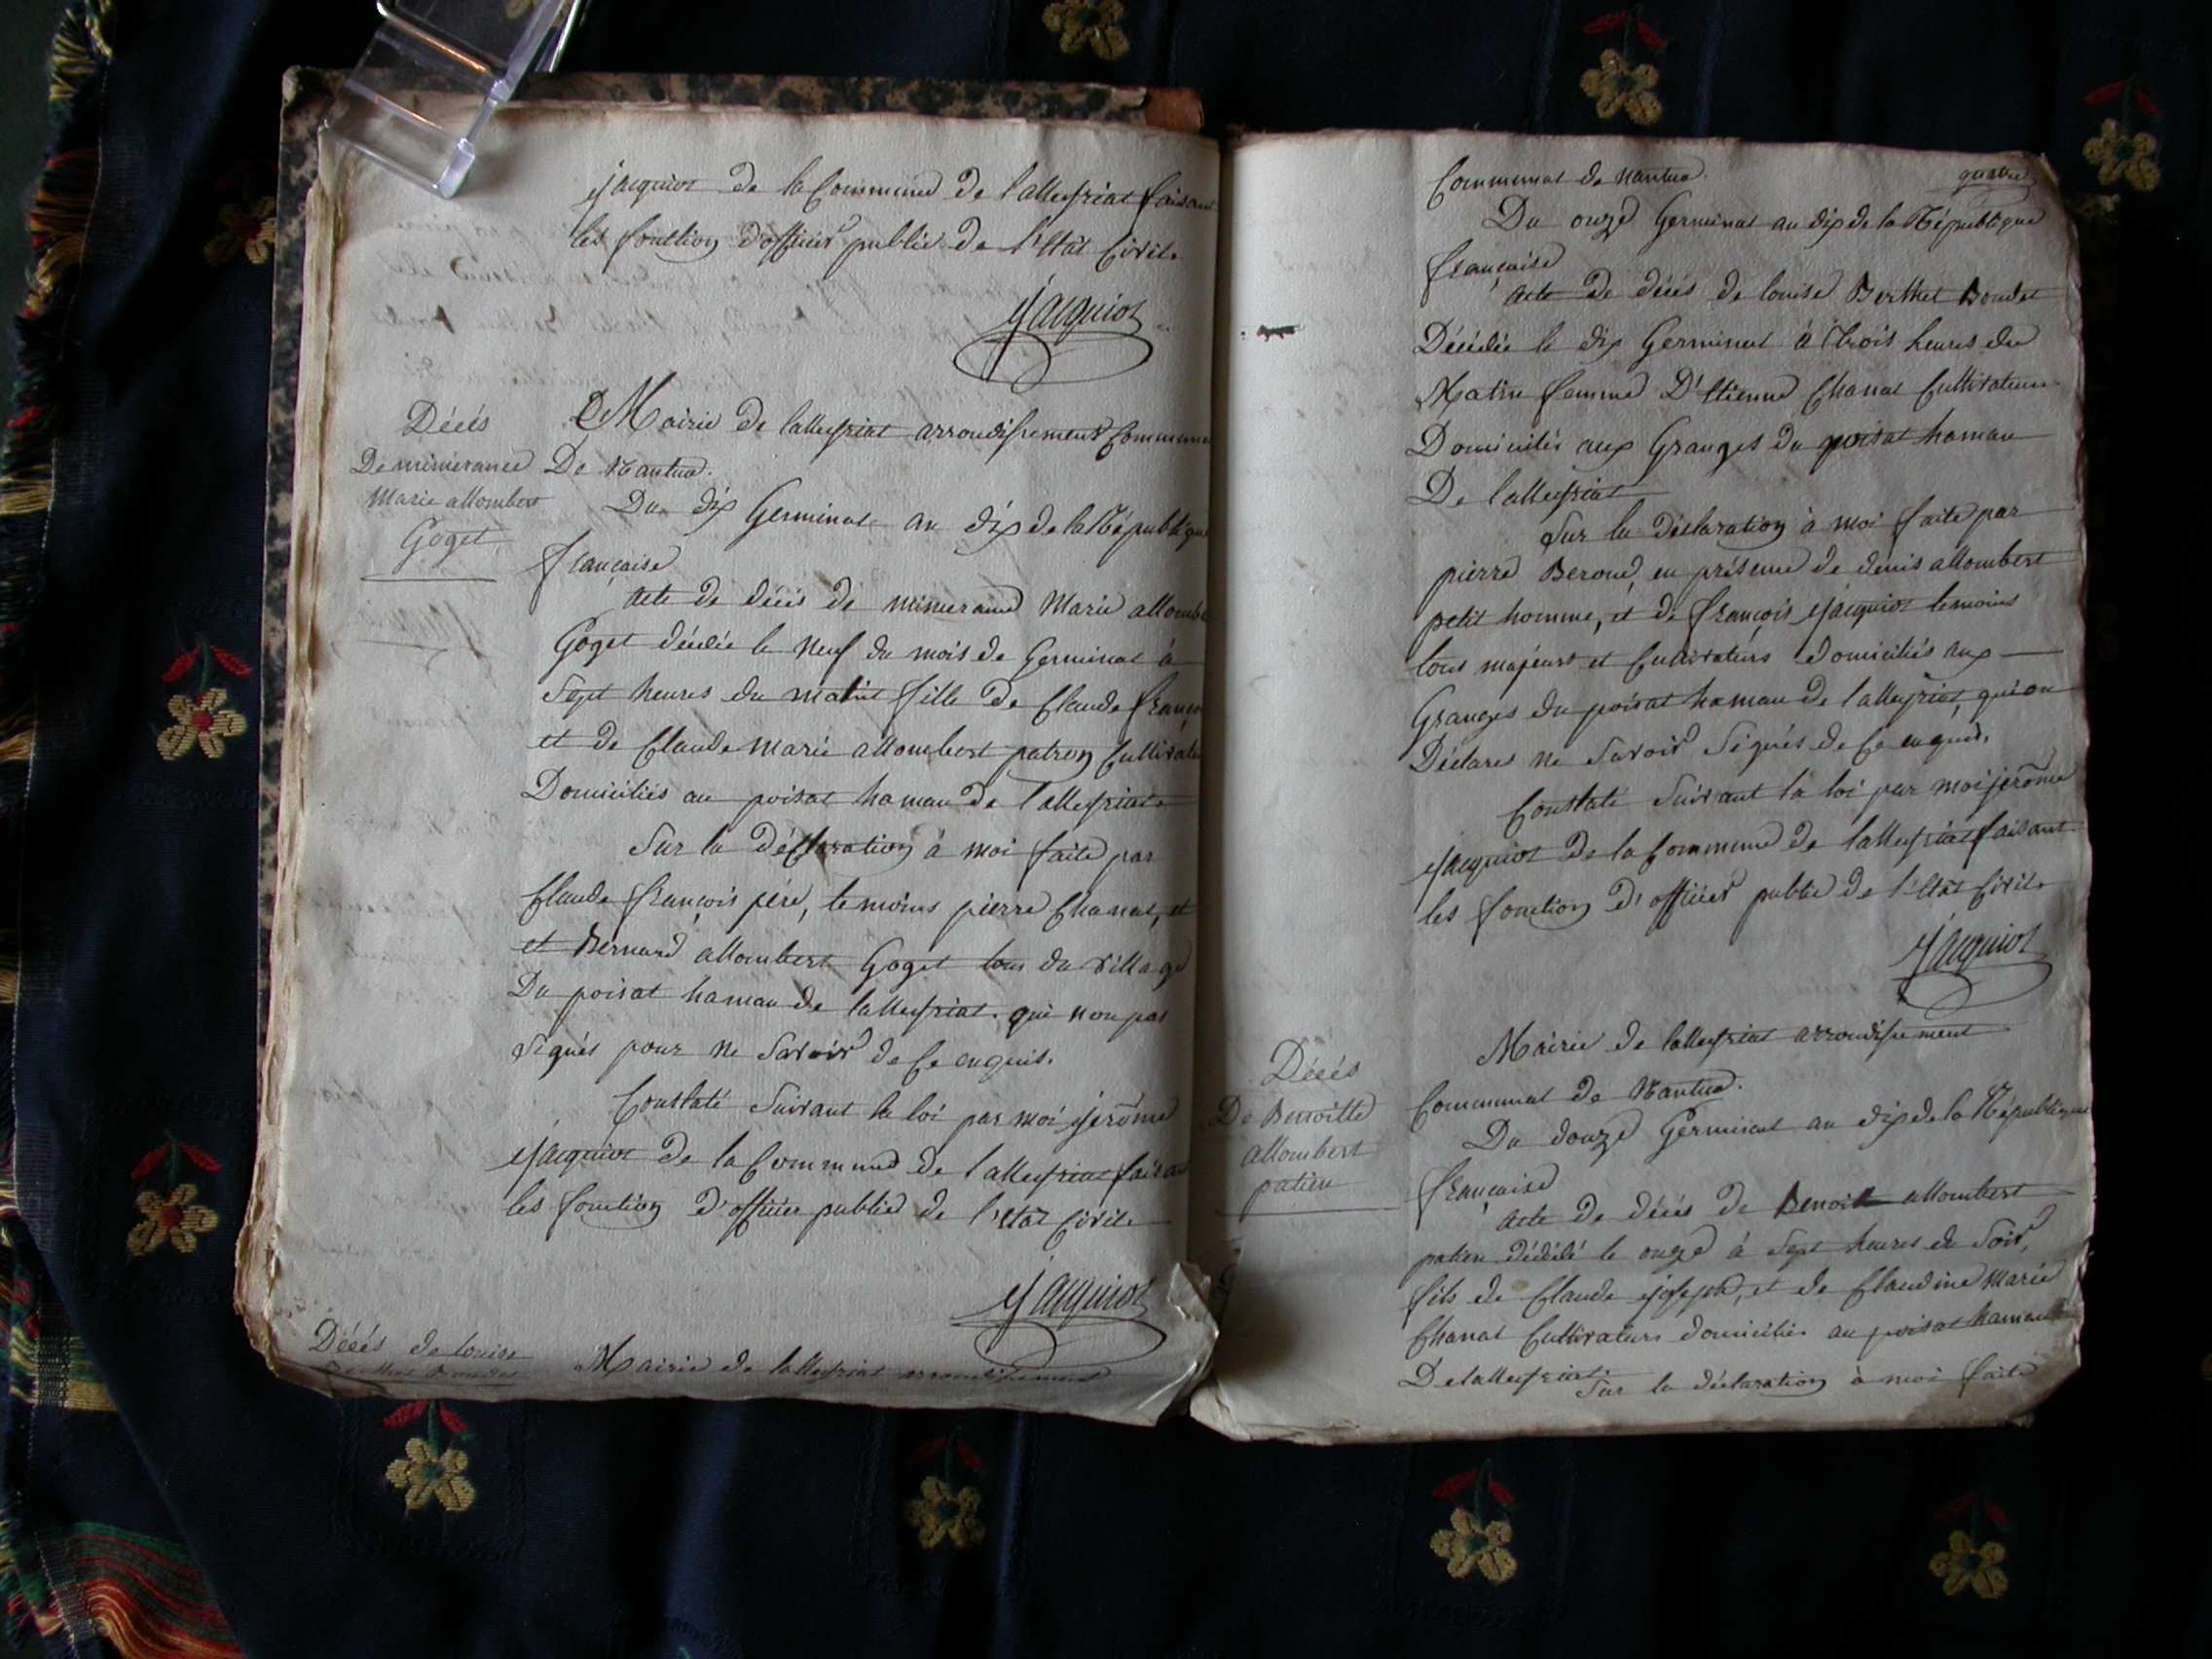 jacquiot de la Commune de lalleyriat faisant
les fonction d'officier public de l'Etat Civil.
Jacquiot
Décés
De mimerance
Marie allombert
Goget
Mairie de lalleyriat arrondissement Communal
De Nantua.
Du dix Germinal an dix de la République
française
acte de décés de mimerance Marie allombert
Goget décédée le neuf du mois de Germinal à
Sept heures du matin fille de Claude françois
et de Claude Marie allombert patron Cultivateurs
Domiciliés au poisat hamau de lalleyriat.
Sur la déclaration à moi faite par
Claude françois père, temoins pierre Chanal, et
et Bernard allombert Goget tous du village
Du poisat hamau de lalleyriat. qui non pas
Signés pour ne Savoir de Ce enquis.
Constaté Suivant la loi par moi jérôme
jacquiot de la Commune de lalleyriat faisant
les fonction d'officier public de l'état Civil.
Jacquiot
Décés de louise
Berthet Bondet
Mairie de lalleyriat arrondissement
Communal de Nantua.
quatre
Du onze Germinal an dix de la République
française
acte de décés de louise Berthet Bondet
Décédée le dix Germinal à trois heures du
Matin femme D'Etienne Chanal Cultivateur
Domiciliés aux Granges du poisat hamau
De lalleyriat
Sur la déclaration à moi faite par
pierre Beroud, en présence de denis allombert
petit homme, et de françois jacquiot temoins
tous majeurs et Cultivateurs domiciliés aux
Granges du poisat hamau de lalleyriat, qui on
Déclarés ne Savoir Signés de Ce enquis.
Constaté Suivant la loi par moi jérôme
jacquiot de la Commune de lalleyriat faisant
les fonction d'officier public de l'Etat Civil.
Jacquiot
Décés
De Benoitte
allombert
patien
Mairie de lalleyriat arrondissement
Communal de Nantua.
Du douze Germinal an dix de la République
française
acte de décés de Benoitt allombert
patien décédé le onze à Sept heures du Soir,
fils de Claude joseph, et de Claudine Marie
Chanal Cultivateurs domiciliés au poisat hamau
De lalleyriat.
Sur la déclaration à moi faite